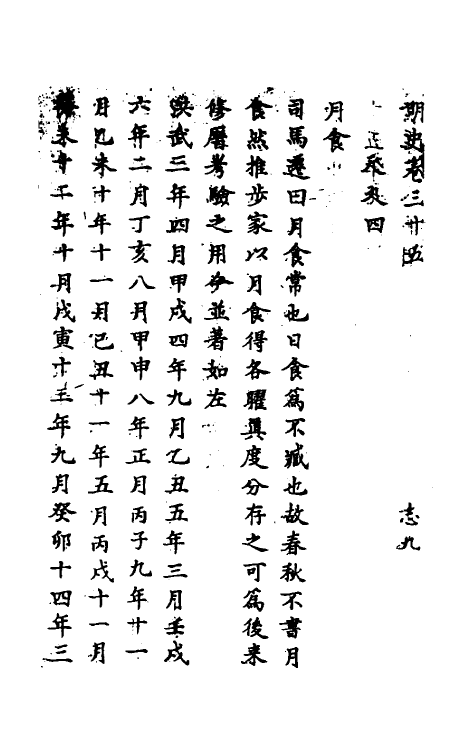 明史卷三十五 志九
天文四
月食
司馬遷曰月食常也日食爲不臧也故春秋不書月
食然推步家以月食得各曜真度分存之可爲後来
修曆考驗之用今並著如左
洪武三年四月甲戌四年九月乙丑五年三月壬戌
六年二月丁亥八月甲申八年正月丙子九年十一
月乙未十年十一月己丑十一年五月丙戌十一月
年十月戊寅十三年九月癸卯十四年三